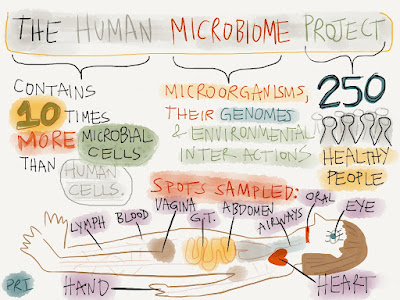 THE HUMAN MICROBIOME PROJECT
CONTAINS
10 TIMES
MORE MICROBIAL CELLS
THAN HUMAN CELLS.
MICROORGANISMS,
THEIR GENOMES
& ENVIRONMENTAL
INTERACTIONS
250
HEALTHY
PEOPLE
SPOTS SAMPLED:
LYMPH
BLOOD
VAGINA
G.T.
ABDOMEN
AIRWAYS
ORAL
EYE
PRI
HAND
HEART